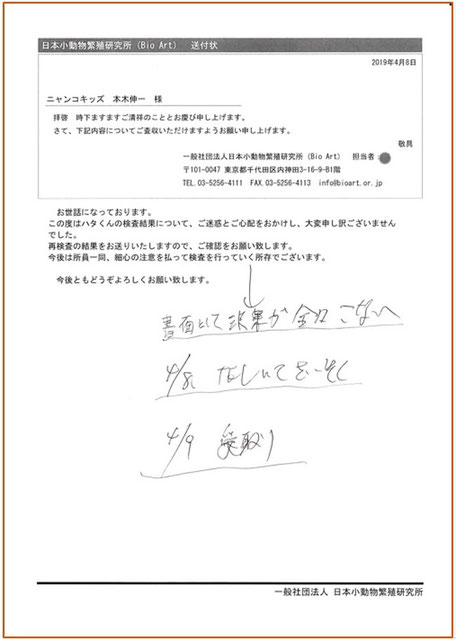 日本小動物繁殖研究所(Bio Art) 送付状
2019年4月8日
ニャンコキッズ 本木伸一 様
拝啓 時下ますますご清祥のこととお慶び申し上げます。
さて、下記内容についてご査収いただけますようお願い申し上げます。
敬具
一般社団法人日本小動物繁殖研究所(Bio Art) 担当者
〒101-0047 東京都千代田区内神田3-16-9-B1階
TEL.03-5256-4111 FAX.03-5256-4113 info@bioart.or.jp
お世話になっております。
この度はハタくんの検査結果について、ご迷惑とご心配をおかけし、大変申し訳ございません
でした。
再検査の結果をお送りいたしますので、ご確認をお願い致します。
今後は所員一同、細心の注意を払って検査を行っていく所存でございます。
今後ともどうぞよろしくお願い致します。
書面として結果が 全然 こない
4/8
4/9 受取り
一般社団法人 日本小動物繁殖研究所